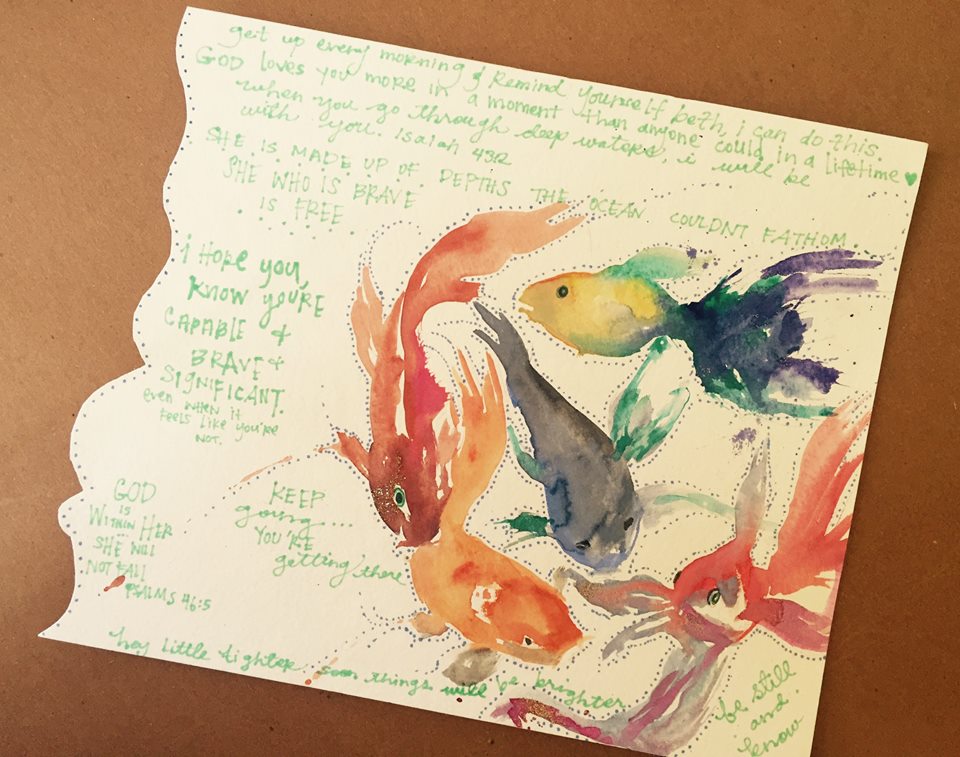 get up every morning & remind yourself beth, i can do this.
GOD loves you more in a moment than anyone could in a lifetime ♥
when you go through deep waters, i will be
with you. Isaiah 43:2
SHE IS MADE UP OF DEPTHS THE OCEAN COULDNT FATHOM.
SHE WHO IS BRAVE
IS FREE
i HOPE you
KNOW YOU'RE
CAPABLE &
BRAVE &
SIGNIFICANT.
even WHEN it
FEELS LIKE YOU'RE
NOT.
GOD
IS
WITHIN HER
SHE WILL
NOT FALL
PSALMS 46:5
KEEP
going...
YOU'RE
getting there
hey little fighter, soon things will be brighter
be still
and
know